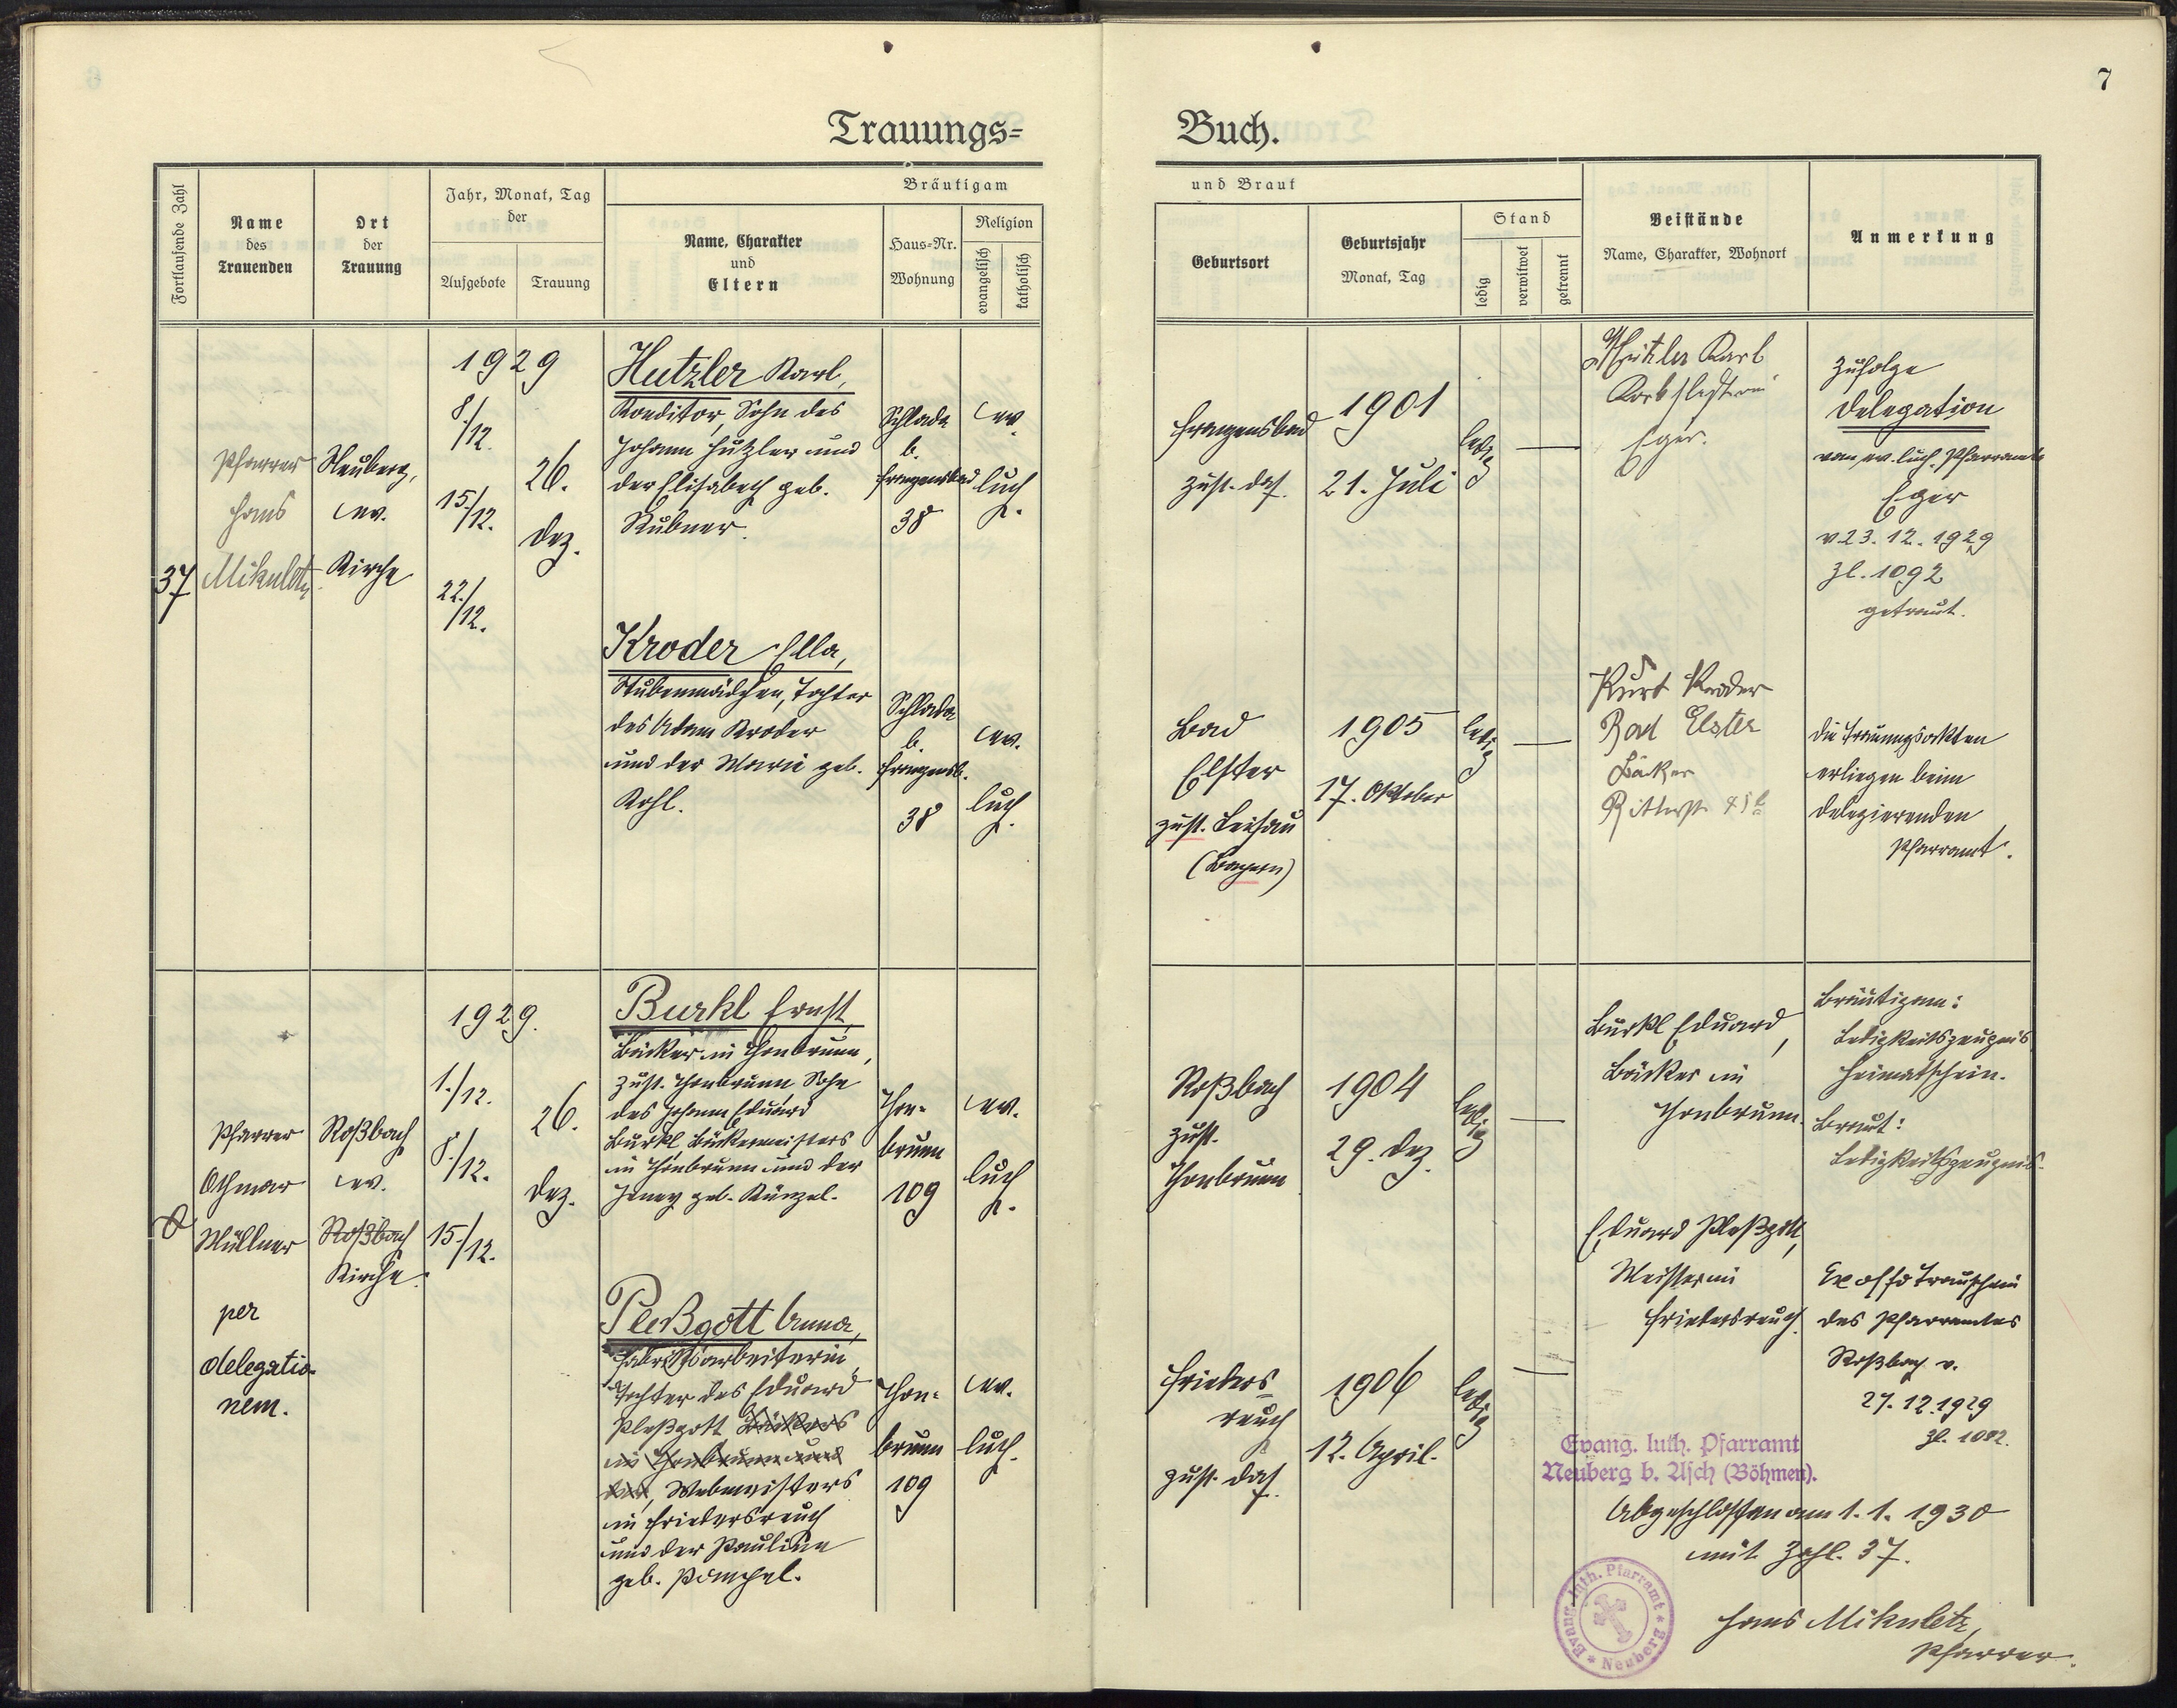 7
Trauungs=
Buch.
Fortlaufende Zahl
Name
des
Trauenden
Ort
der
Trauung
Jahr, Monat, Tag
der
Aufgebote
Trauung
Bräutigam
Name, Charakter
und
Eltern
Haus=Nr.
Wohnung
Religion
evangelisch
katholisch
und Braut
Geburtsort
Geburtsjahr
Monat, Tag
Stand
ledig
verwitwet
getrennt
Beistände
Name, Charakter, Wohnort
Anmerkung
37
Pfarrer
Hans
Mikuletz
Neuberg,
ev.
Kirche
1929
8./12.
15./12.
22./12.
26.
Dez.
Hutzler Karl,
Konditor, Sohn des
Johann Hutzler und
der Elisabeth geb.
Stübner.
Schlada
b.
Franzensbad
38
ev.
luth.
Franzensbad
zust. das.
1901
21. Juli
ledig
Karl
Eger.
Zufolge
Delegation
vom ev. luth. Pfarramte
Eger
v. 23. 12. 1929
Zl. 1092
getraut.
Kroder Ella,
Stubenmädchen, Tochter
des Adam Kroder
und der Marie geb.
Kohl.
Schlada
b.
Franzensb.
38
ev.
luth.
Bad
Elster
zust. Leisau
(Bayern)
1905
17. Oktober
ledig
Kurt Kroder
Bad Elster
Bäcker
Die Trauungsakten
erliegen beim
delegierenden
Pfarramt.
Pfarrer
Othmar
Müllner
per
delegatio-
nem.
Roßbach
ev.
Roßbach
Kirche.
1929.
1./12.
8./12.
15./12.
26.
Dez.
Burkl Ernst,
Bäcker in Thonbrunn,
zust. Thonbrunn, Sohn
des Johann Eduard
Burkl, Bäckermeisters
in Thonbrunn und der
Jenny geb. Künzel.
Thon-
brunn
109
ev.
luth.
Roßbach
zust.
Thonbrunn
1904
29. Dez.
ledig
Burkl Eduard,
Bäcker in
Thonbrunn.
Bräutigam:
Ledigkeitszeugnis
Heimatschein.
Braut:
Ledigkeitszeugnis.
Pleßgott Anna,
Fabriksarbeiterin,
Tochter des Eduard
Pleßgott Bäckers
in Thonbrunn und
der, Webmeisters
in Friedersreuth
und der Pauline
geb.
Thon-
brunn
109
ev.
luth.
Frieders-
reuth
zust. das.
1906
12. April.
ledig
Eduard Pleßgott,
Meister in
Friedersreuth.
Ex offo Trauschein
des Pfarramtes
Roßbach v.
27. 12. 1929
Zl. 1082.
Evang. luth. Pfarramt
Neuberg b. Asch (Böhmen).
Abgeschlossen am 1. 1. 1930
mit Zahl. 37.
Evang. luth. Pfarramt * Neuberg *
Hans Mikuletz,
Pfarrer.